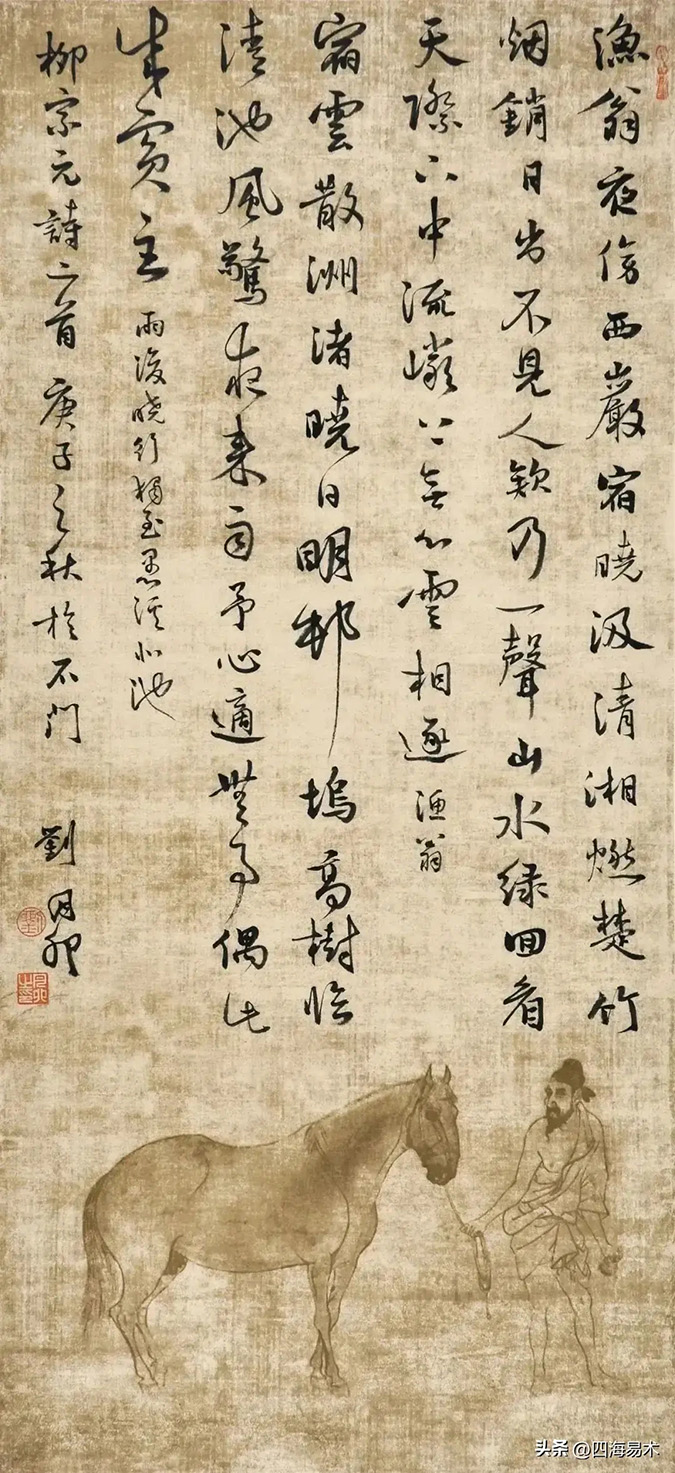 漁翁夜傍西巖宿曉汲清湘燃楚竹
烟銷日出不見人欸乃一聲山水緑回看
天際下中流巖上無心雲相逐 漁翁
宿雲散洲渚曉日明邨塢高樹臨
清池風驚夜来雨予心適無事偶此
成賓主 雨後曉行獨至愚溪北池
柳宗元詩二首 庚子之秋於石門
劉月卯
头条 @四海易木